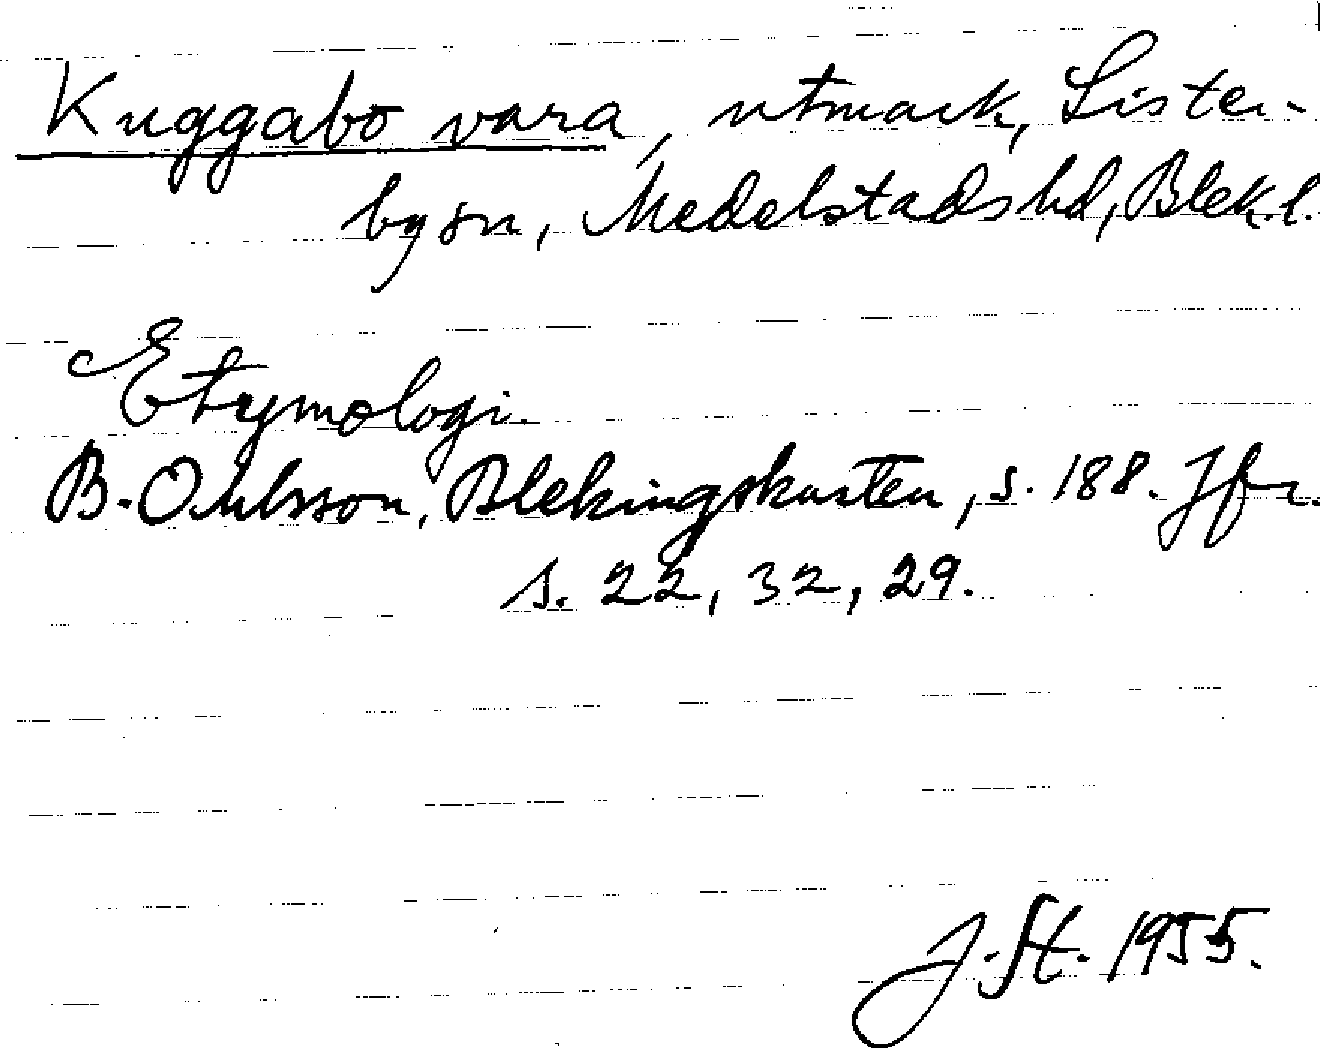 Kuggabo vara, utmark, Lister-
by sn, Medelstads hd, Blek. l.
Etymologi.
B. Ohlsson, Blekingskusten, s. 188. Jfr.
s. 22, 32, 29.
J. St. 1955.